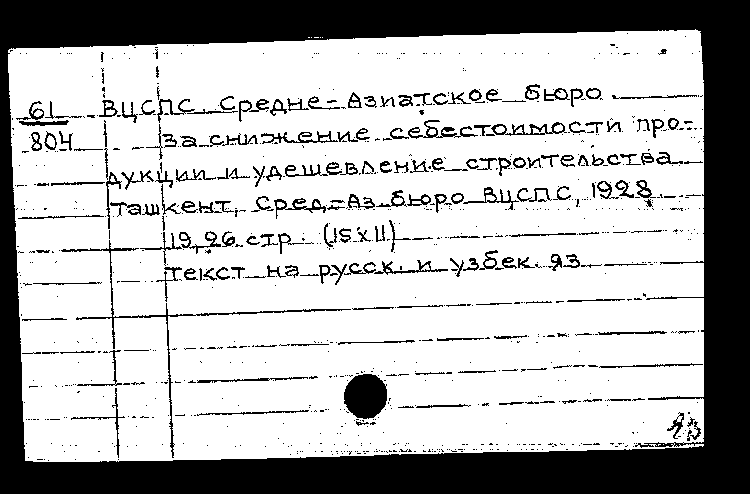 61 ВЦСПС. Средне-Азиатское бюро.
804 За снижение себестоимости про-
дукции и удешевление строительства.
Ташкент, Сред.-Аз. бюро ВЦСПС, 1928.
19, 26 стр. (15х11)
текст на русск. и узбек. яз.